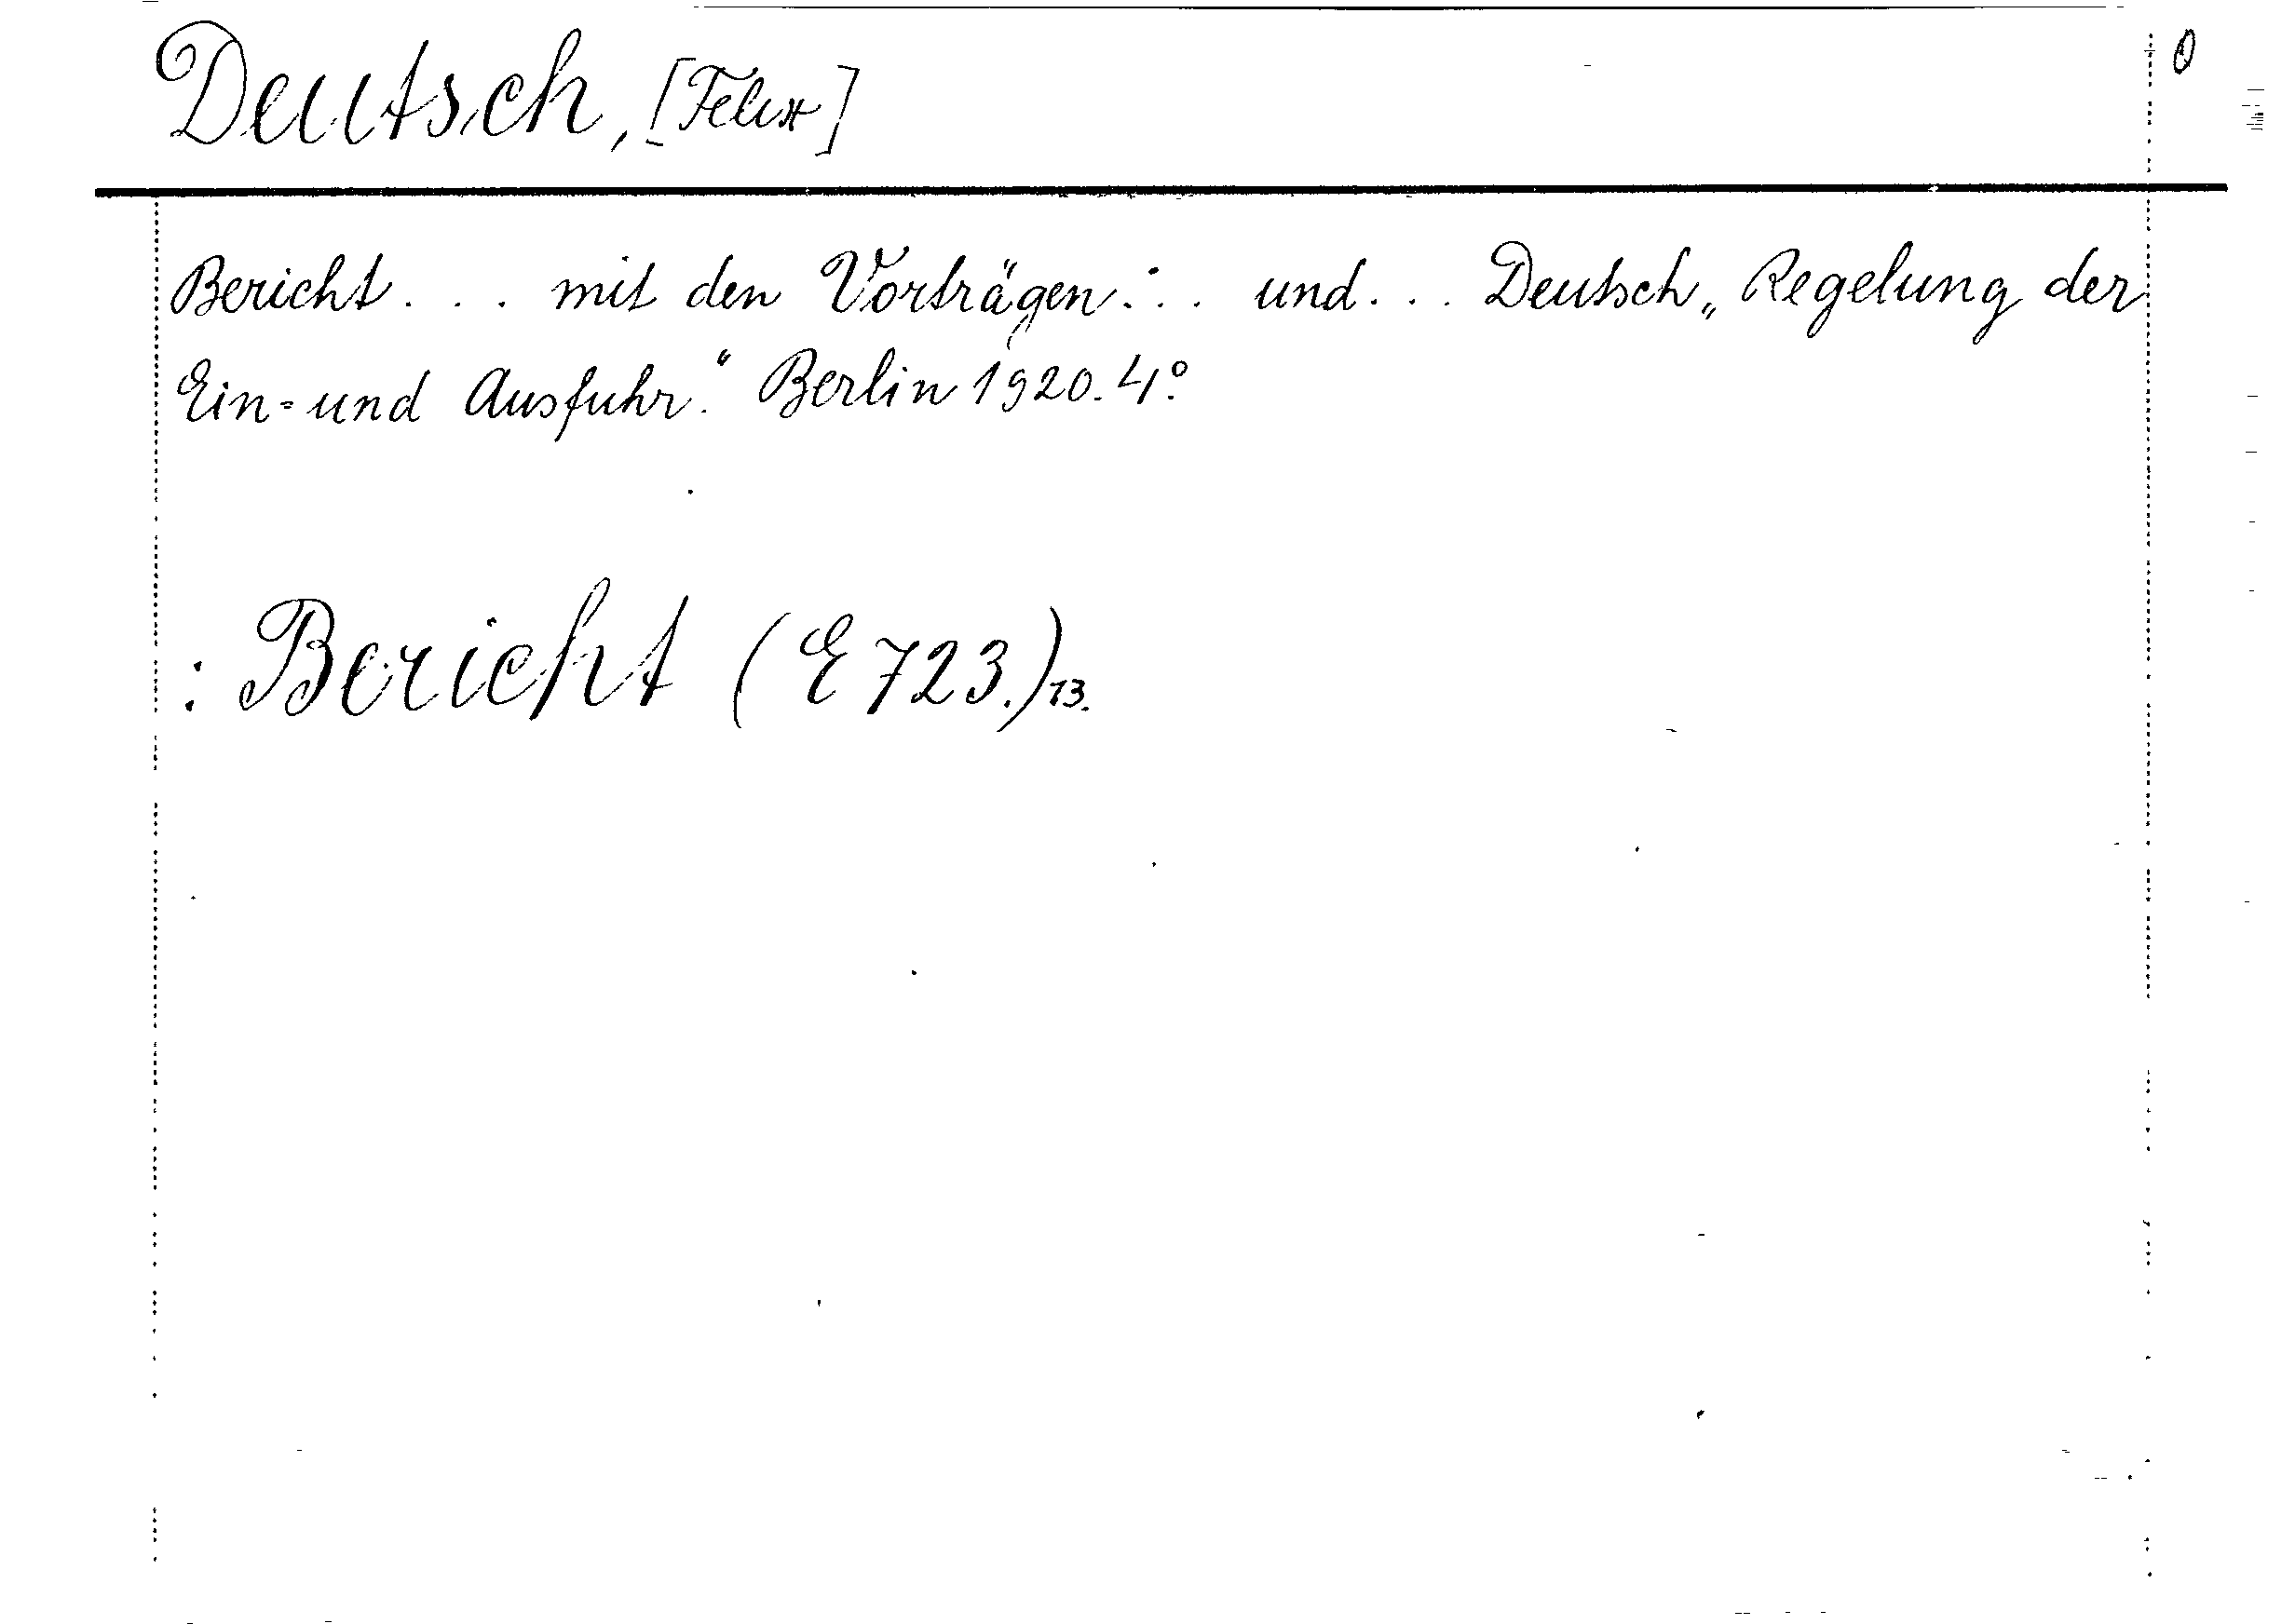 Deutsch, [Felix]
0
Bericht . . . mit den Vorträgen . . . und . . . Deutsch „Regelung der
Ein= und Ausfuhr.“ Berlin 1920. 4°.
: Bericht (E 723.) 13.